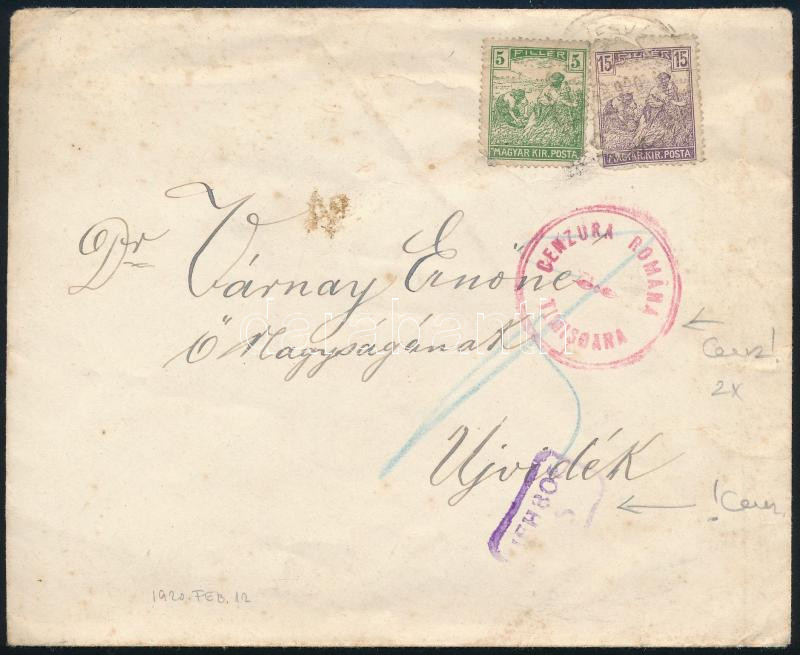 5 FILLER 5
MAGYAR KIR. POSTA
15 FILLER 15
MAGYAR KIR. POSTA
Dr Várnay Ernőné
Ő Nagyságának
Ujvidék
CENZURA ROMÂNA
TIMIŞOARA
← Cenz!
2x
← !Cenz.
darabanth
1920. FEB. 12